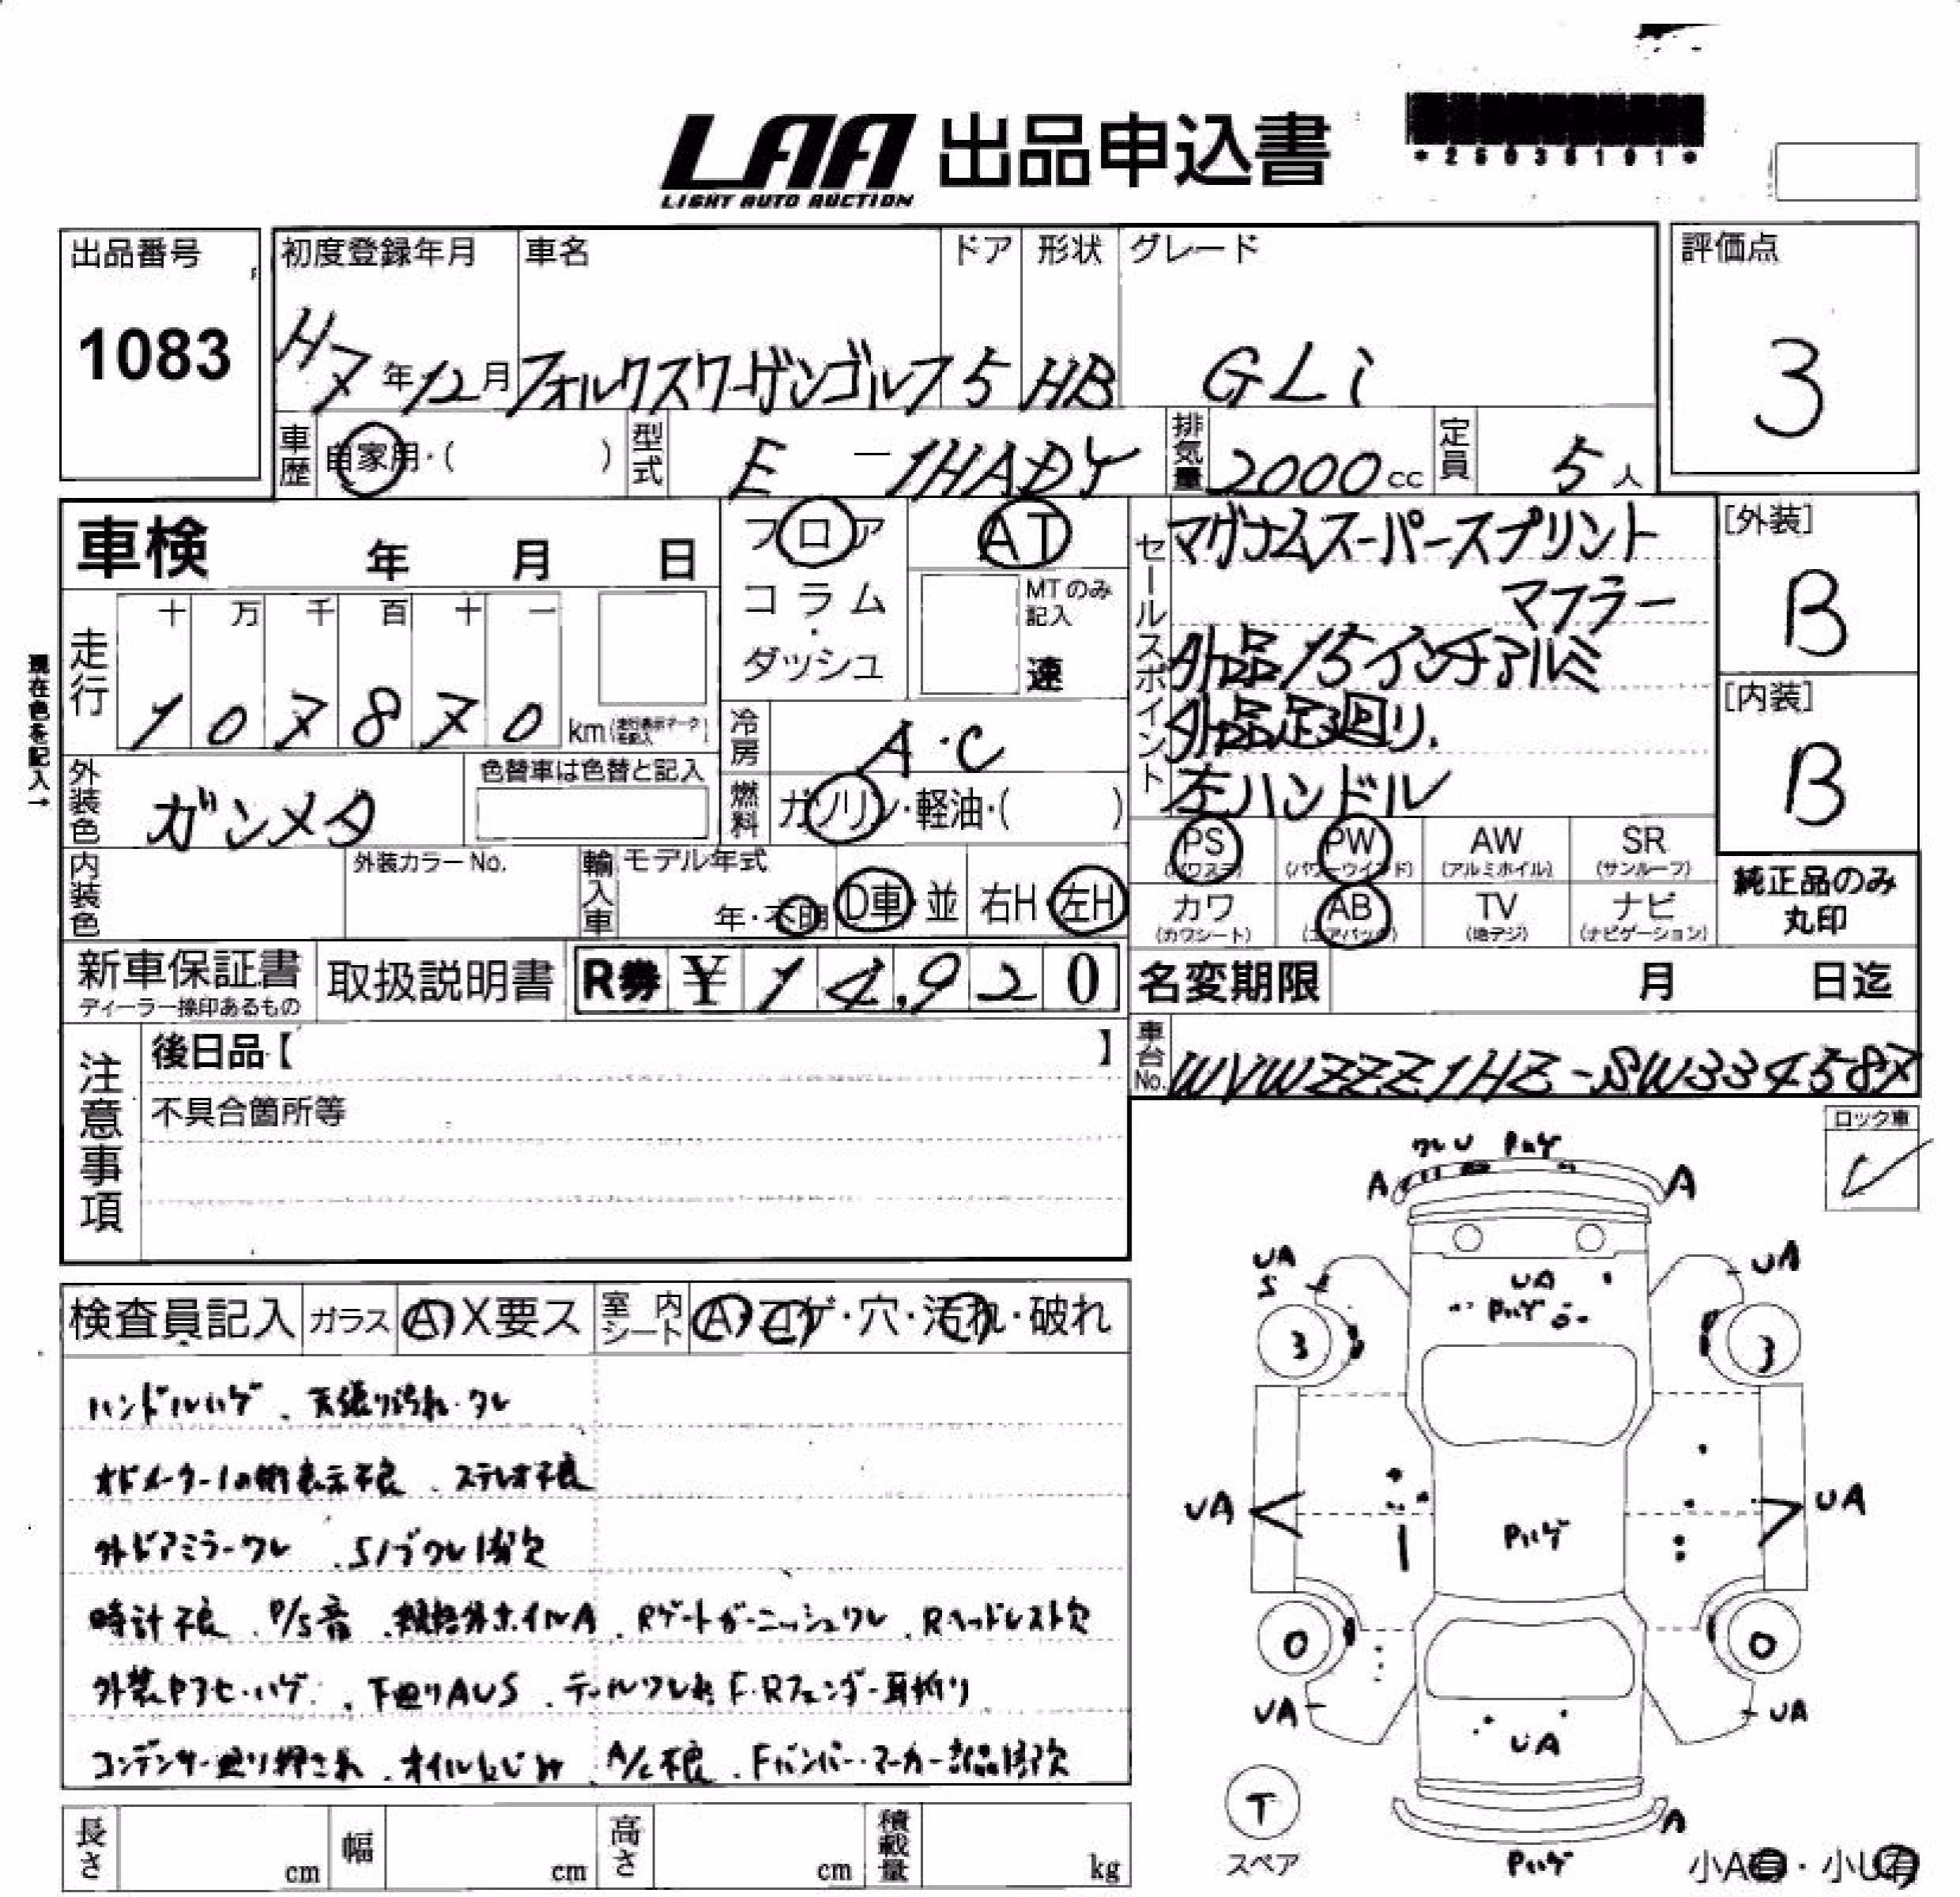 LAA 出品申込書
LIGHT AUTO AUCTION
*25035191*
出品番号
1083
初度登録年月 車名 ドア 形状 グレード
H7年12月 フォルクスワーゲンゴルフ 5 HB GLi
評価点
3
車歴 自家用・( ) 型式 E-1HADY 排気量 2000cc 定員 5人
車検 年 月 日
フロア
コラム
・
ダッシュ
AT
MTのみ
記入
速
セールスポイント
マグナムスーパースプリント
マフラー
外品15インチアルミ
外品足回り.
左ハンドル
[外装]
B
[内装]
B
現在色を記入→
走行
十 万 千 百 十 一
1 0 7 8 7 0 km
冷房 A・C
外装色 ガンメタ
色替車は色替と記入
燃料 ガソリン・軽油・( )
PS AW SR
(パワステ) PW (パワーウインド) (アルミホイル) (サンルーフ)
カワ AB TV ナビ
(カワシート) (エアバッグ) (地デジ) (ナビゲーション)
純正品のみ
丸印
内装色 外装カラーNo.
輸入車 モデル年式
年・不明 D車・並 右H・左H
新車保証書
ディーラー捺印あるもの
取扱説明書
R券 ¥14,920
名変期限 月 日迄
車台No. WVWZZZ1HZ-SW334587
注意事項
後日品【 】
不具合箇所等
ロック車
検査員記入 ガラス A X要ス 室内シート A・コゲ・穴・汚れ・破れ
ハンドルハゲ、天張り汚れ・タレ
オドメーター1の桁表示不良、ステレオ不良
外ドアミラーワレ
時計不良、P/S音、規格外ホイルA、Rゲートガーニッシュワレ、Rヘッドレスト欠
下廻りAUS F・Rフェンダー耳折り
コンデンサー廻り押され、オイルにじみ、A/C不良、Fバンパー・マーカー部品1部欠
ワレ U Pハゲ
A A
UA
S
UA
UA
Pハゲ
3 3
UA UA
Pハゲ
0 0
UA UA
UA
T
スペア
A
Pハゲ
小A有・小U有
長さ cm 幅 cm 高さ cm 積載量 kg